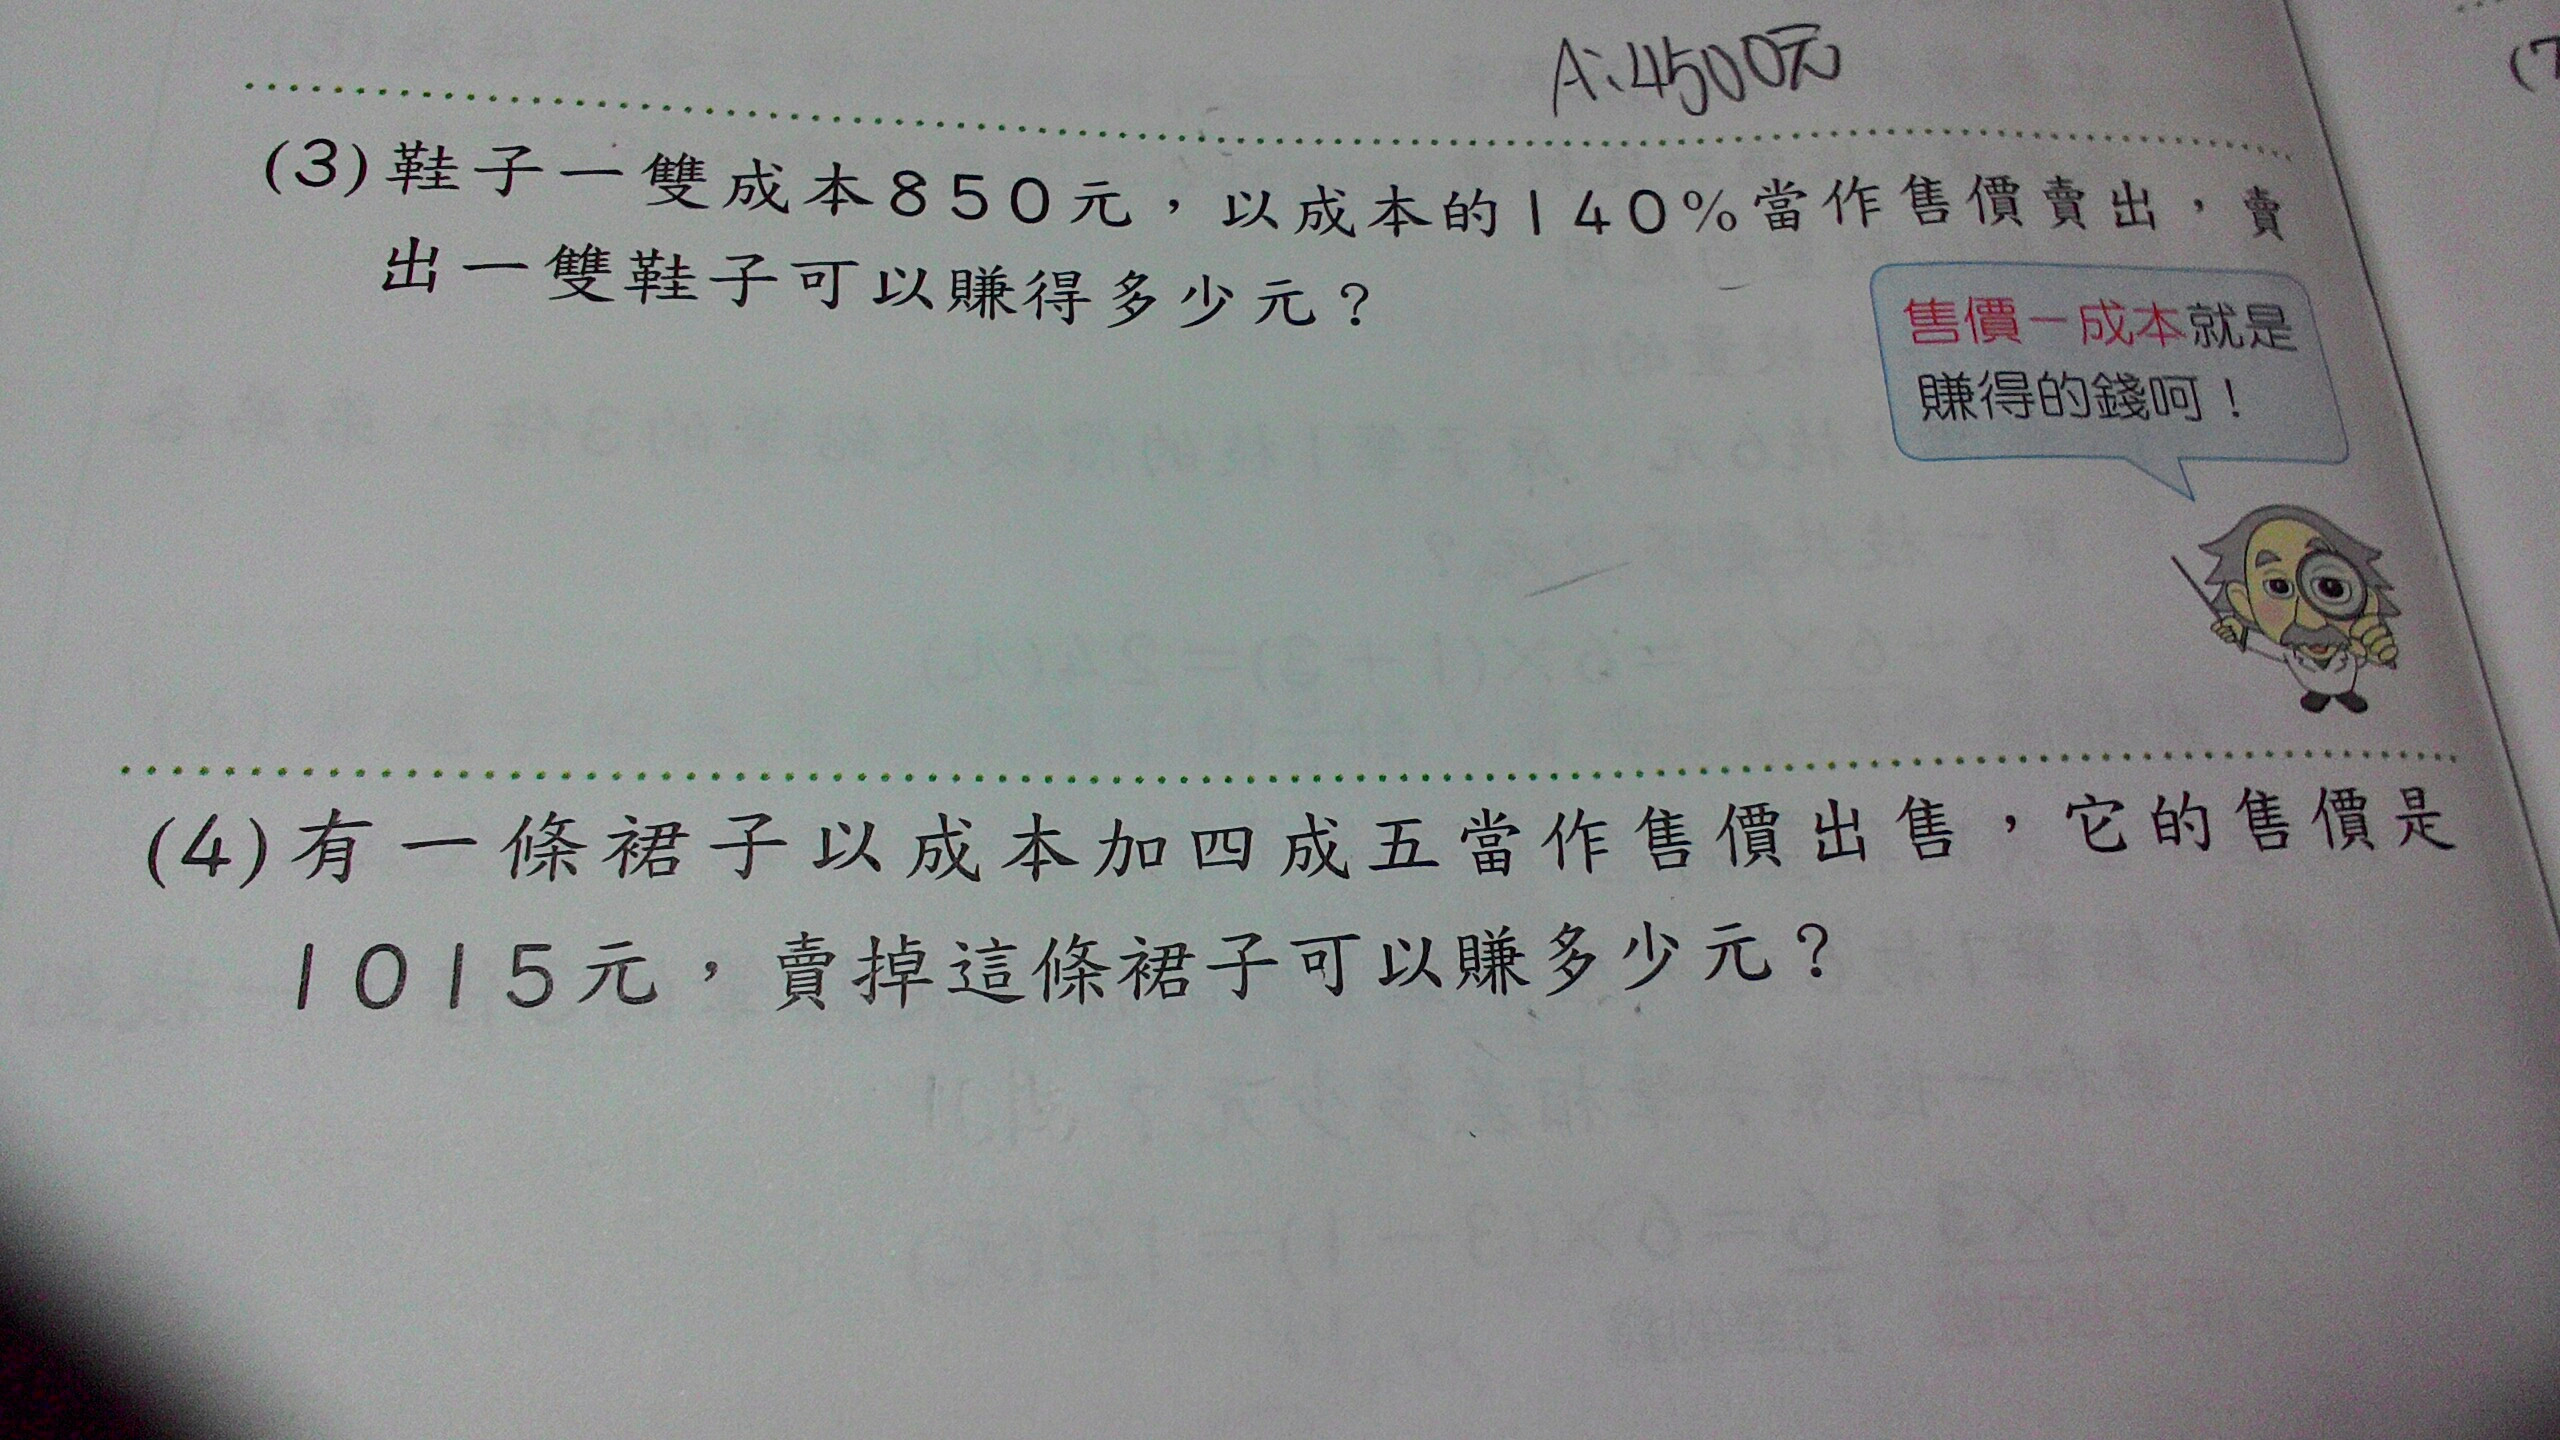 A:4500元
(3)鞋子一雙成本850元，以成本的140%當作售價賣出，賣
出一雙鞋子可以賺得多少元？
售價－成本就是
賺得的錢呵！
(4)有一條裙子以成本加四成五當作售價出售，它的售價是
1015元，賣掉這條裙子可以賺多少元？